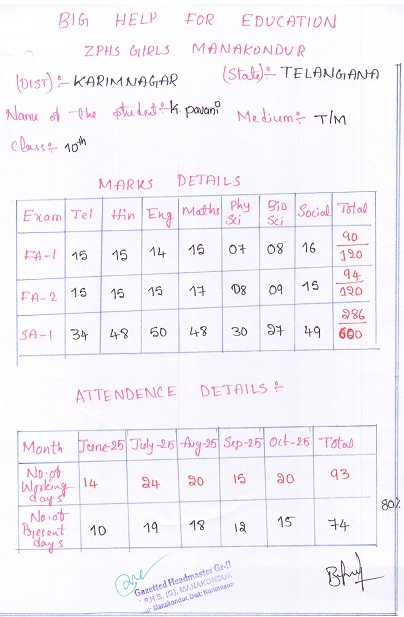 BIG HELP FOR EDUCATION
ZPHS GIRLS MANAKONDUR
(DIST):- KARIMNAGAR (State):- TELANGANA
Name of the student:- K. pavani Medium:- T/M
Class:- 10th
MARKS DETAILS
Exam Tel Hin Eng Maths Phy Sci Bio Sci Social Total
FA-1 15 15 14 15 07 08 16 90/120
FA-2 15 15 15 17 08 09 15 94/120
SA-1 34 48 50 48 30 27 49 286/600
ATTENDENCE DETAILS:-
Month June-25 July-25 Aug-25 Sep-25 Oct-25 Total
No. of Working days 14 24 20 15 20 93
No. of Present days 10 19 18 12 15 74
80%
Gazetted Headmaster Gr.II
Z.P.H.S. (G), MANAKONDUR
Manakondur, Dist: Karimnagar